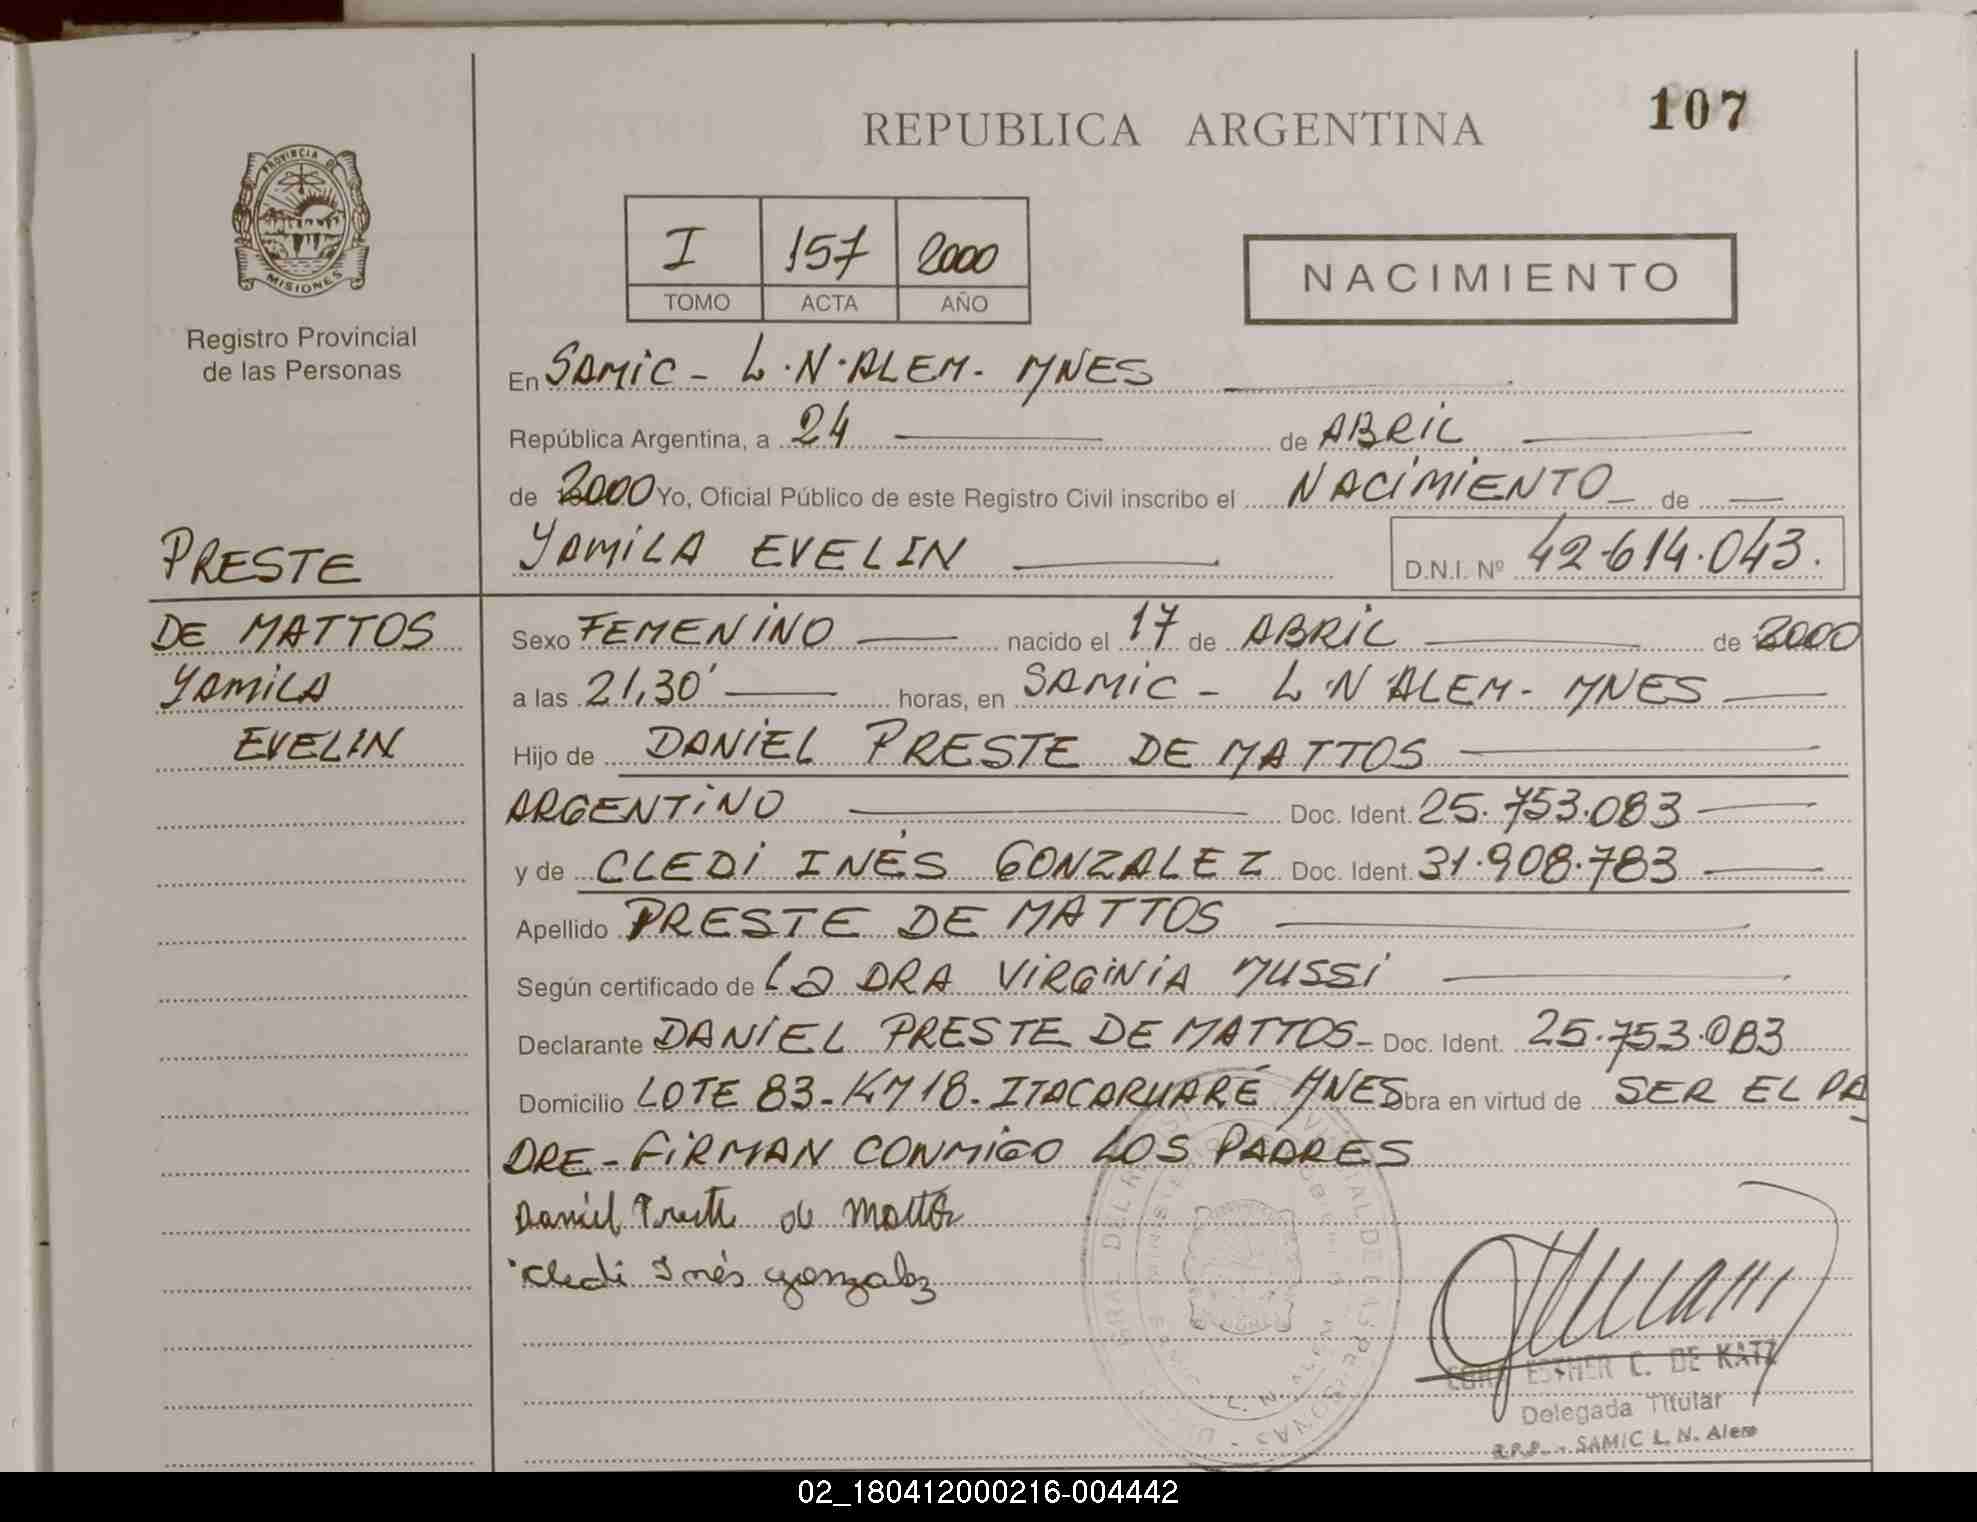 REPUBLICA ARGENTINA
107
PROVINCIA DE
MISIONES
Registro Provincial
de las Personas
I 157 2000
TOMO ACTA AÑO
NACIMIENTO
En SAMIC - L.N. ALEM. MNES
República Argentina, a 24 de ABRIL
de 2000 Yo, Oficial Público de este Registro Civil inscribo el NACIMIENTO de
YAMILA EVELIN D.N.I. Nº 42.614.043.
PRESTE
DE MATTOS
YAMILA
EVELIN
Sexo FEMENINO nacido el 17 de ABRIL de 2000
a las 21,30' horas, en SAMIC - L.N ALEM. MNES
Hijo de DANIEL PRESTE DE MATTOS
ARGENTINO Doc. Ident. 25.753.083
y de CLEDI INÉS GONZALEZ Doc. Ident. 31.908.783
Apellido PRESTE DE MATTOS
Según certificado de La DRA VIRGINIA MUSSI
Declarante DANIEL PRESTE DE MATTOS - Doc. Ident. 25.753.083
Domicilio LOTE 83 - KM 18 - ITACARUARÉ MNES obra en virtud de SER EL PA
DRE - FIRMAN CONMIGO LOS PADRES
Daniel Preste de Mattos
Cledi Inés Gonzalez
ESTHER C. DE KATZ
Delegada Titular
R.P.P. - SAMIC L. N. Alem
02_180412000216-004442